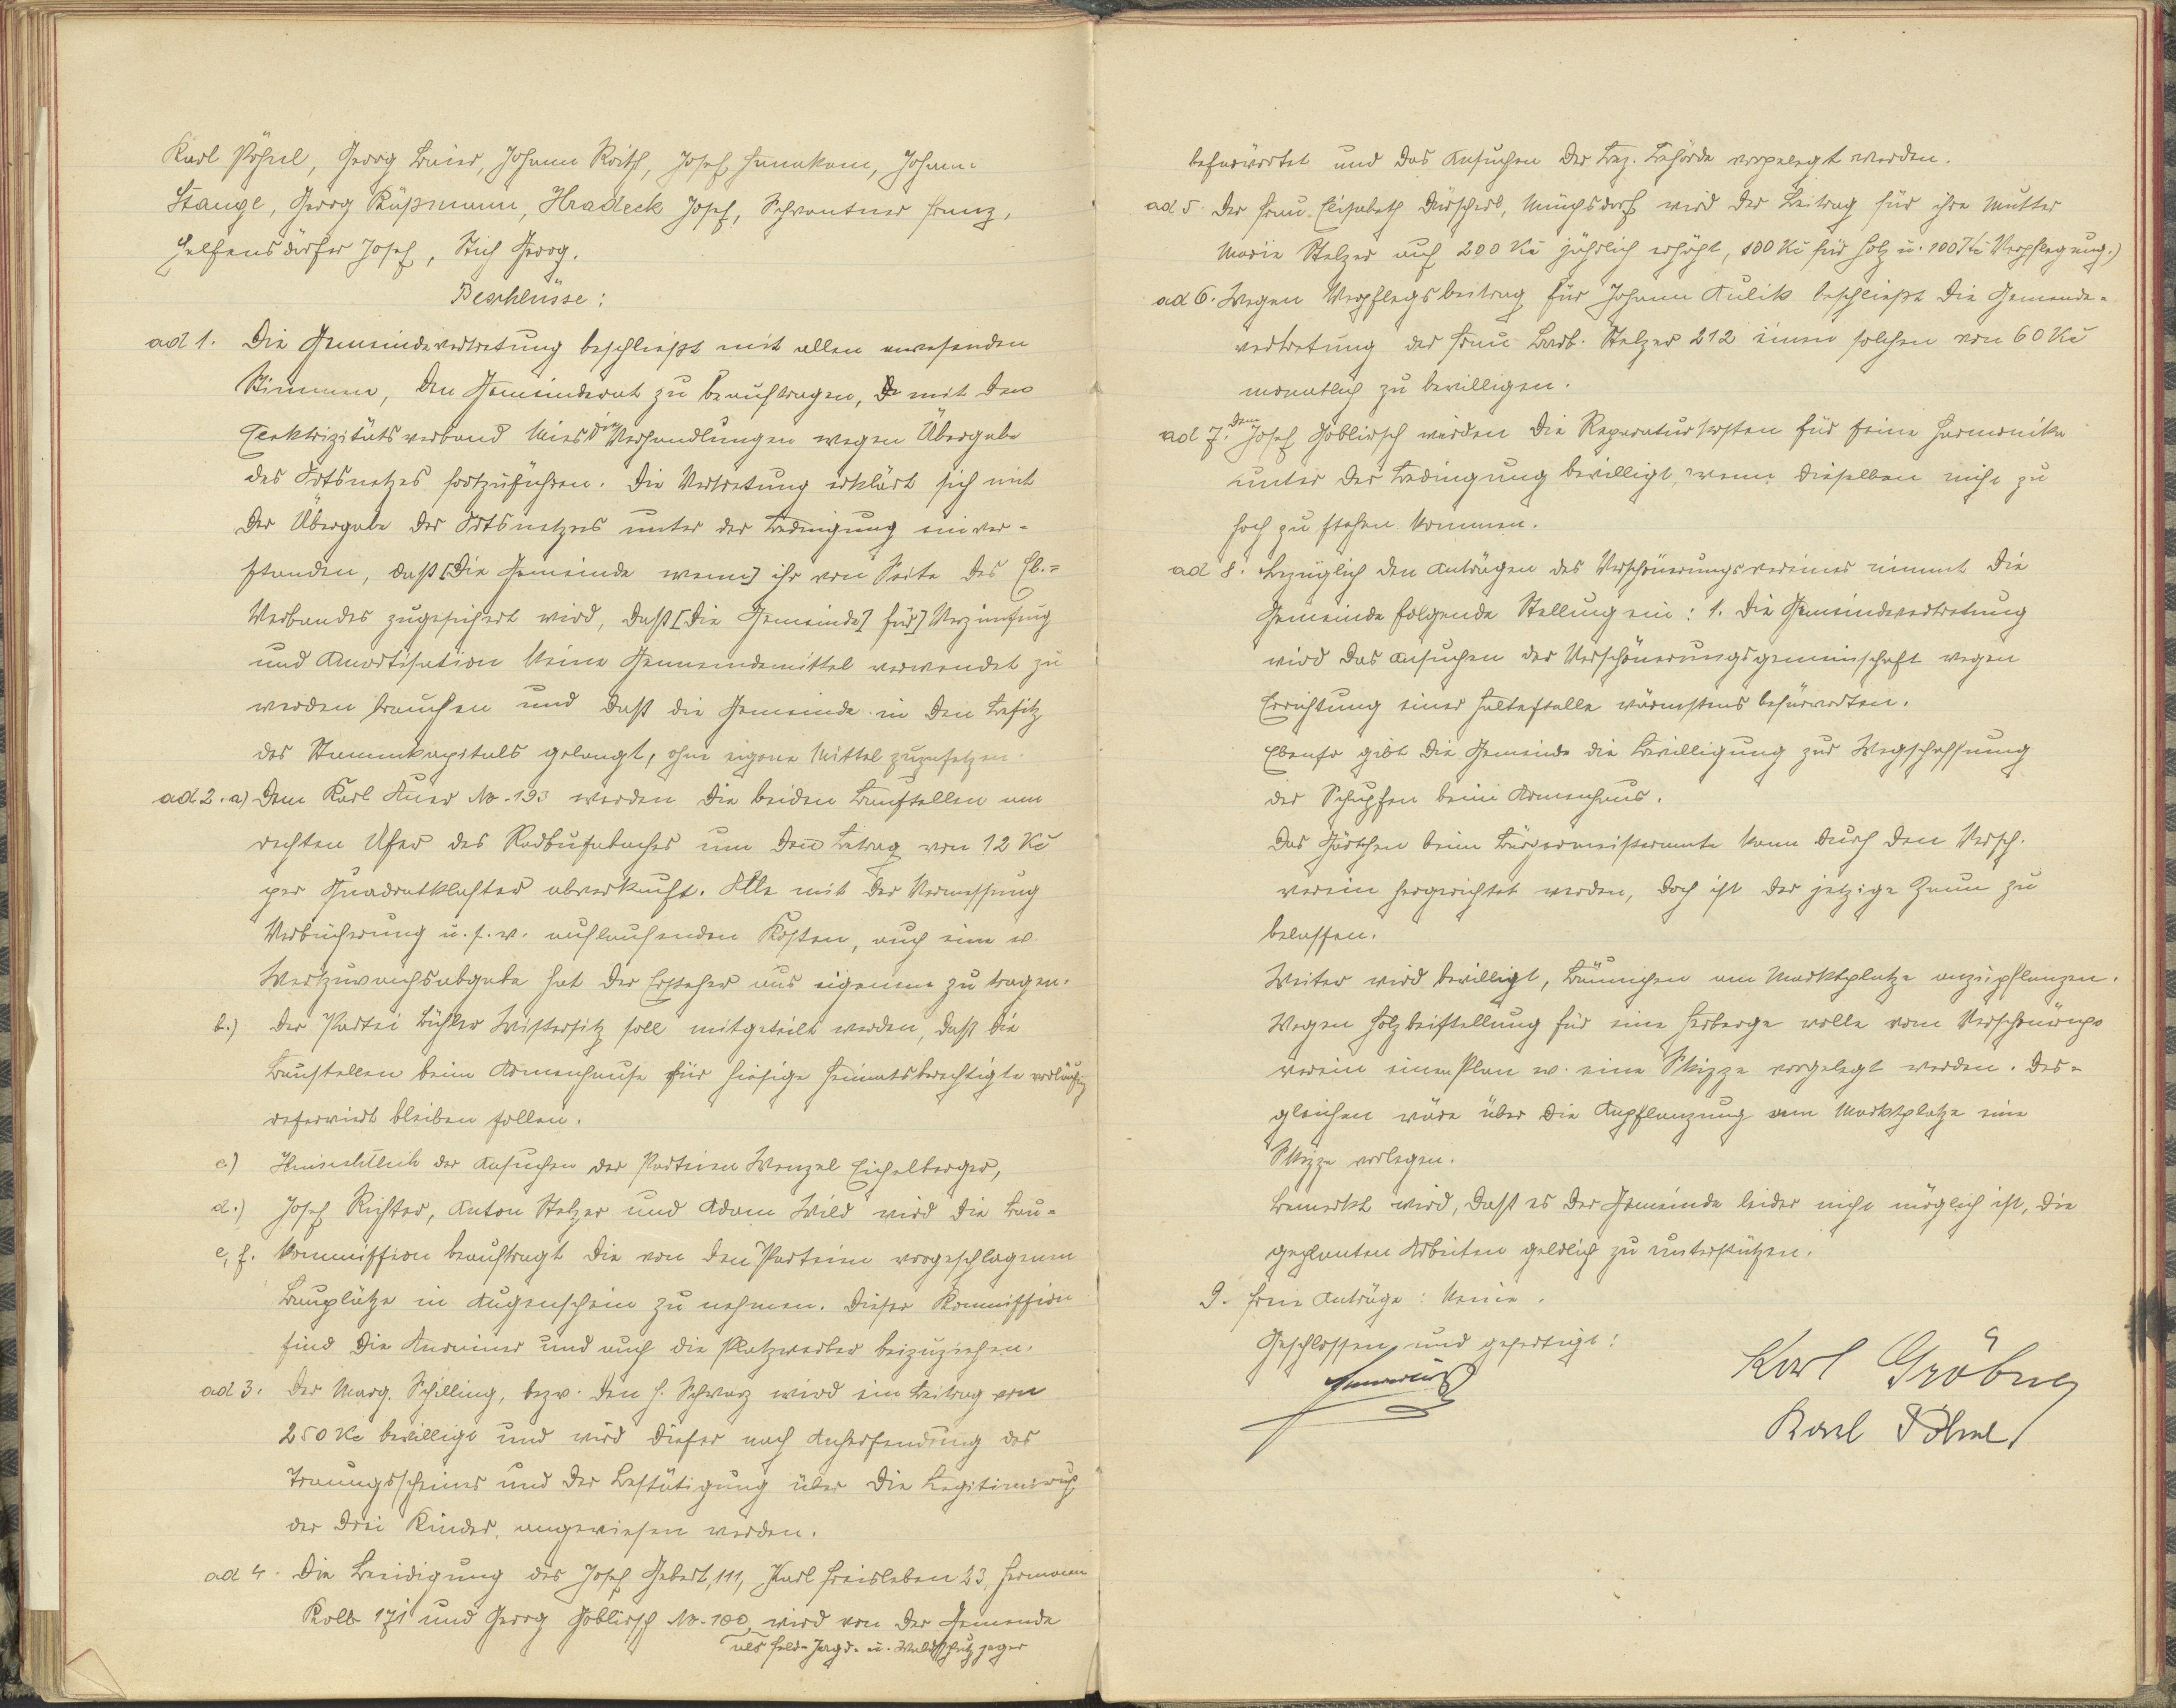 Karl Pöhnl, Georg Baier, Johann Roith, Josef Hanakam, Johann
Stangl, Georg Rüßmann, Hradeck Josef, Schwantner Franz,
Helfensdörfer Josef, Stich Georg.
Beschlüsse:
ad 1. Die Gemeindevertretung beschließt mit allen anwesenden
Stimmen, den Gemeinderat zu beauftragen, mit dem
Elektrizitätsverband Mies die Verhandlungen wegen Übergabe
des Ortsnetzes fortzuführen. Die Vertretung erklärt sich mit
der Übergabe des Ortsnetzes unter der Bedingung einver-
standen, daß [die Gemeinde wenn] ihr von Seite des El.-
Verbandes zugesichert wird, daß [die Gemeinde] für] Verzinsung
und Amortisation keine Gemeindemittel verwendet zu
werden brauchen und daß die Gemeinde in den Besitz
des Stammkapitals gelangt, ohne eigene Mittel zuzusetzen.
ad 2. a) Dem Karl Auer No. 193 werden die beiden Baustellen am
rechten Ufer des Radbusabaches um den Betrag von 12 Kč
per Quadratklafter abverkauft. Alle mit der Vermessung
Verbücherung u. s. w. auflaufenden Kosten, auch eine ev.
Wertzuwachsabgabe hat der Ersteher aus eigenem zu tragen.
b.) Der Partei Bühler Wistersitz soll mitgeteilt werden, daß die
Baustellen beim Armenhause für hiesige Heimatsberechtigte vorläufig
reserviert bleiben sollen.
c.) Hinsichtlich der Ansuchen der Parteien Wenzel Eichelberger,
d.) Josef Richter, Anton Stelzer und Adam Wild wird die Bau-
e, f. kommission beauftragt die von den Parteien vorgeschlagenen
Bauplätze in Augenschein zu nehmen. Dieser Kommission
sind die Anrainer und auch die Platzwerber beizuziehen.
ad 3. Der Marg. Schilling, bezw. den H. Schwarz wird ein Beitrag von
250 Kč bewilligt und wird dieser nach Anhersendung des
Trauungsscheines und der Bestätigung über die Legitimierung
der drei Kinder, angewiesen werden.
ad 4. Die Beeidigung des Josef Gebert, 111, Karl Freisleben 23, Hermann
Kolb 171 und Georg Goblirsch No. 100, wird von der Gemeinde
als Feld- Jagd- u. Waldschutzjäger
befürwortet und das Ansuchen der Bez. Behörde vorgelegt werden.
ad 5. Der Frau Elisabeth Dürscherl, Münchsdorf wird der Beitrag für ihre Mutter
Marie Stelzer auf 200 Kč jährlich erhöht, 100 Kč für Holz u. 100 Kč Verpflegung.)
ad 6. Wegen Verpflegsbeitrag für Johann Kulik beschließt die Gemeinde-
vertretung der Frau Barb. Stelzer 212 einen solchen von 60 Kč
monatlich zu bewilligen.
ad 7. Dem Josef Goblirsch werden die Reparaturkosten für seine Harmonika
unter der Bedingung bewilligt, wenn dieselben nicht zu
hoch zu stehen kommen.
ad 8. Bezüglich den Anträgen des Verschönerungsvereines nimmt die
Gemeinde folgende Stellung ein: 1. Die Gemeindevertretung
wird das Ansuchen der Verschönerungsgemeinschaft wegen
Errichtung einer Haltestelle wärmstens befürworten.
Ebenso gibt die Gemeinde die Bewilligung zur Wegschaffung
der Schupfen beim Armenhaus.
Das Gärtchen beim Bürgermeisteramte kann durch den Versch.
verein hergerichtet werden, doch ist der jetzige Zaun zu
belassen.
Weiter wird bewilligt, Bäumchen am Marktplatze anzupflanzen.
Wegen Holzbeistellung für eine Herberge wolle vom Verschönergs
verein einen Plan ev. eine Skizze vorgelegt werden. Des-
gleichen wäre über die Anpflanzung am Marktplatze eine
Skizze vorlegen.
Bemerkt wird, daß es der Gemeinde leider nicht möglich ist, die
geplanten Arbeiten geldlich zu unterstützen.
9. Freie Anträge: Keine.
Geschlossen und gefertigt:
Karl Gröbner
Karl Pöhnl